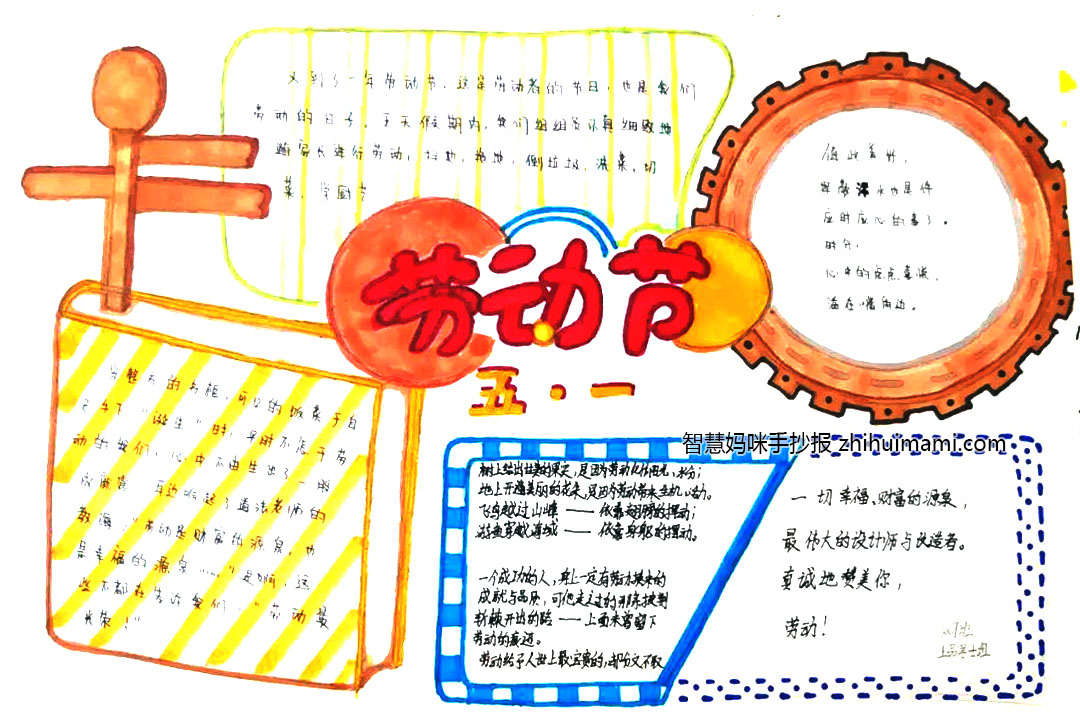 又到了一年劳动节，这是劳动者的节日，也是我们
劳动的日子。五天假期内，我们组组员认真细致地
跟家长进行劳动，扫地，拖地，倒垃圾，洗菜，切
菜，学厨艺
应时应心的喜了。
时分，
心中的点点喜悦，
劳动节
五·一
完整天的书柜，可口的饭菜于自
己手下“诞生”时，平时不怎干劳
动的我们，心中不由生出了一股
成就感，耳边响起了道法老师的
教诲：“劳动是财富的源泉，也
是幸福的源泉……”是啊，这
些不都在告诉我们，“劳动最
光荣！”
智慧妈咪手抄报 zhihuimami.com
树上结出甜美的果实，是因为劳动化作阳光、水分；
地上开遍美丽的花朵，是因为劳动带来生机、活力。
飞鸟越过山峰——依靠翅膀的摆动；
游鱼穿越海域——依靠身躯的摆动。
一个成功的人，身上一定有劳动换来的
成就与品质，可他走过的那条披荆
斩棘开出的路——上面未曾留下
劳动的痕迹。
劳动给予人世上最宝贵的，却吩文不取
一切幸福、财富的源泉，
最伟大的设计师与改造者。
真诚地赞美你，
劳动！